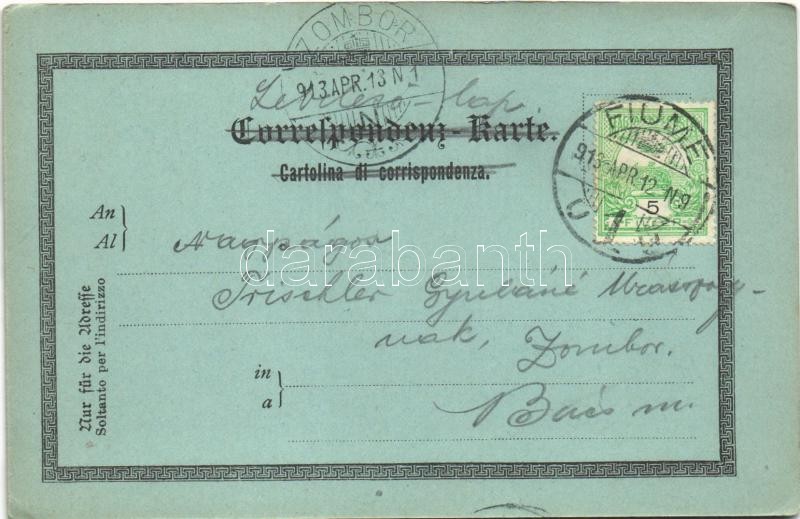 ZOMBOR
913 APR. 13 N 1
Levelező-lap
Correspondenz-Karte.
Cartolina di corrispondenza.
FIUME
913 APR. 12 N 9
5
An
Al
Nagyságos
Trischler Gyuláné Uraszony-
nak, Zombor.
in
a
Bács m.
Nur für die Adresse
Soltanto per l'indirizzo
darabanth